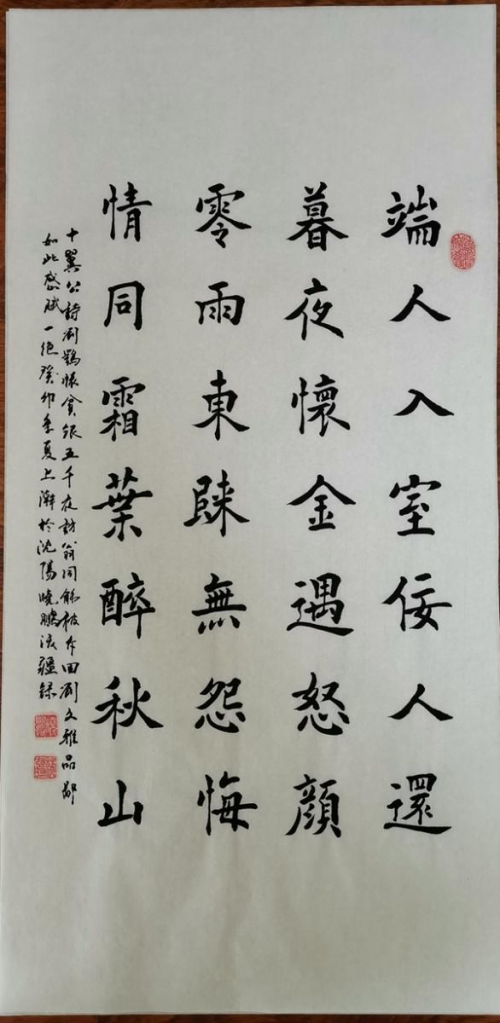 端人入室佞人還
暮夜懷金遇怒顏
零雨東踈無怨悔
情同霜葉醉秋山
十翼公詩刘鶚懷貪銀五千夜訪翁同龢被斥回刘文雅品鄙
如此感賦一絕癸卯季夏上澣於沈陽曉鵬張疆録